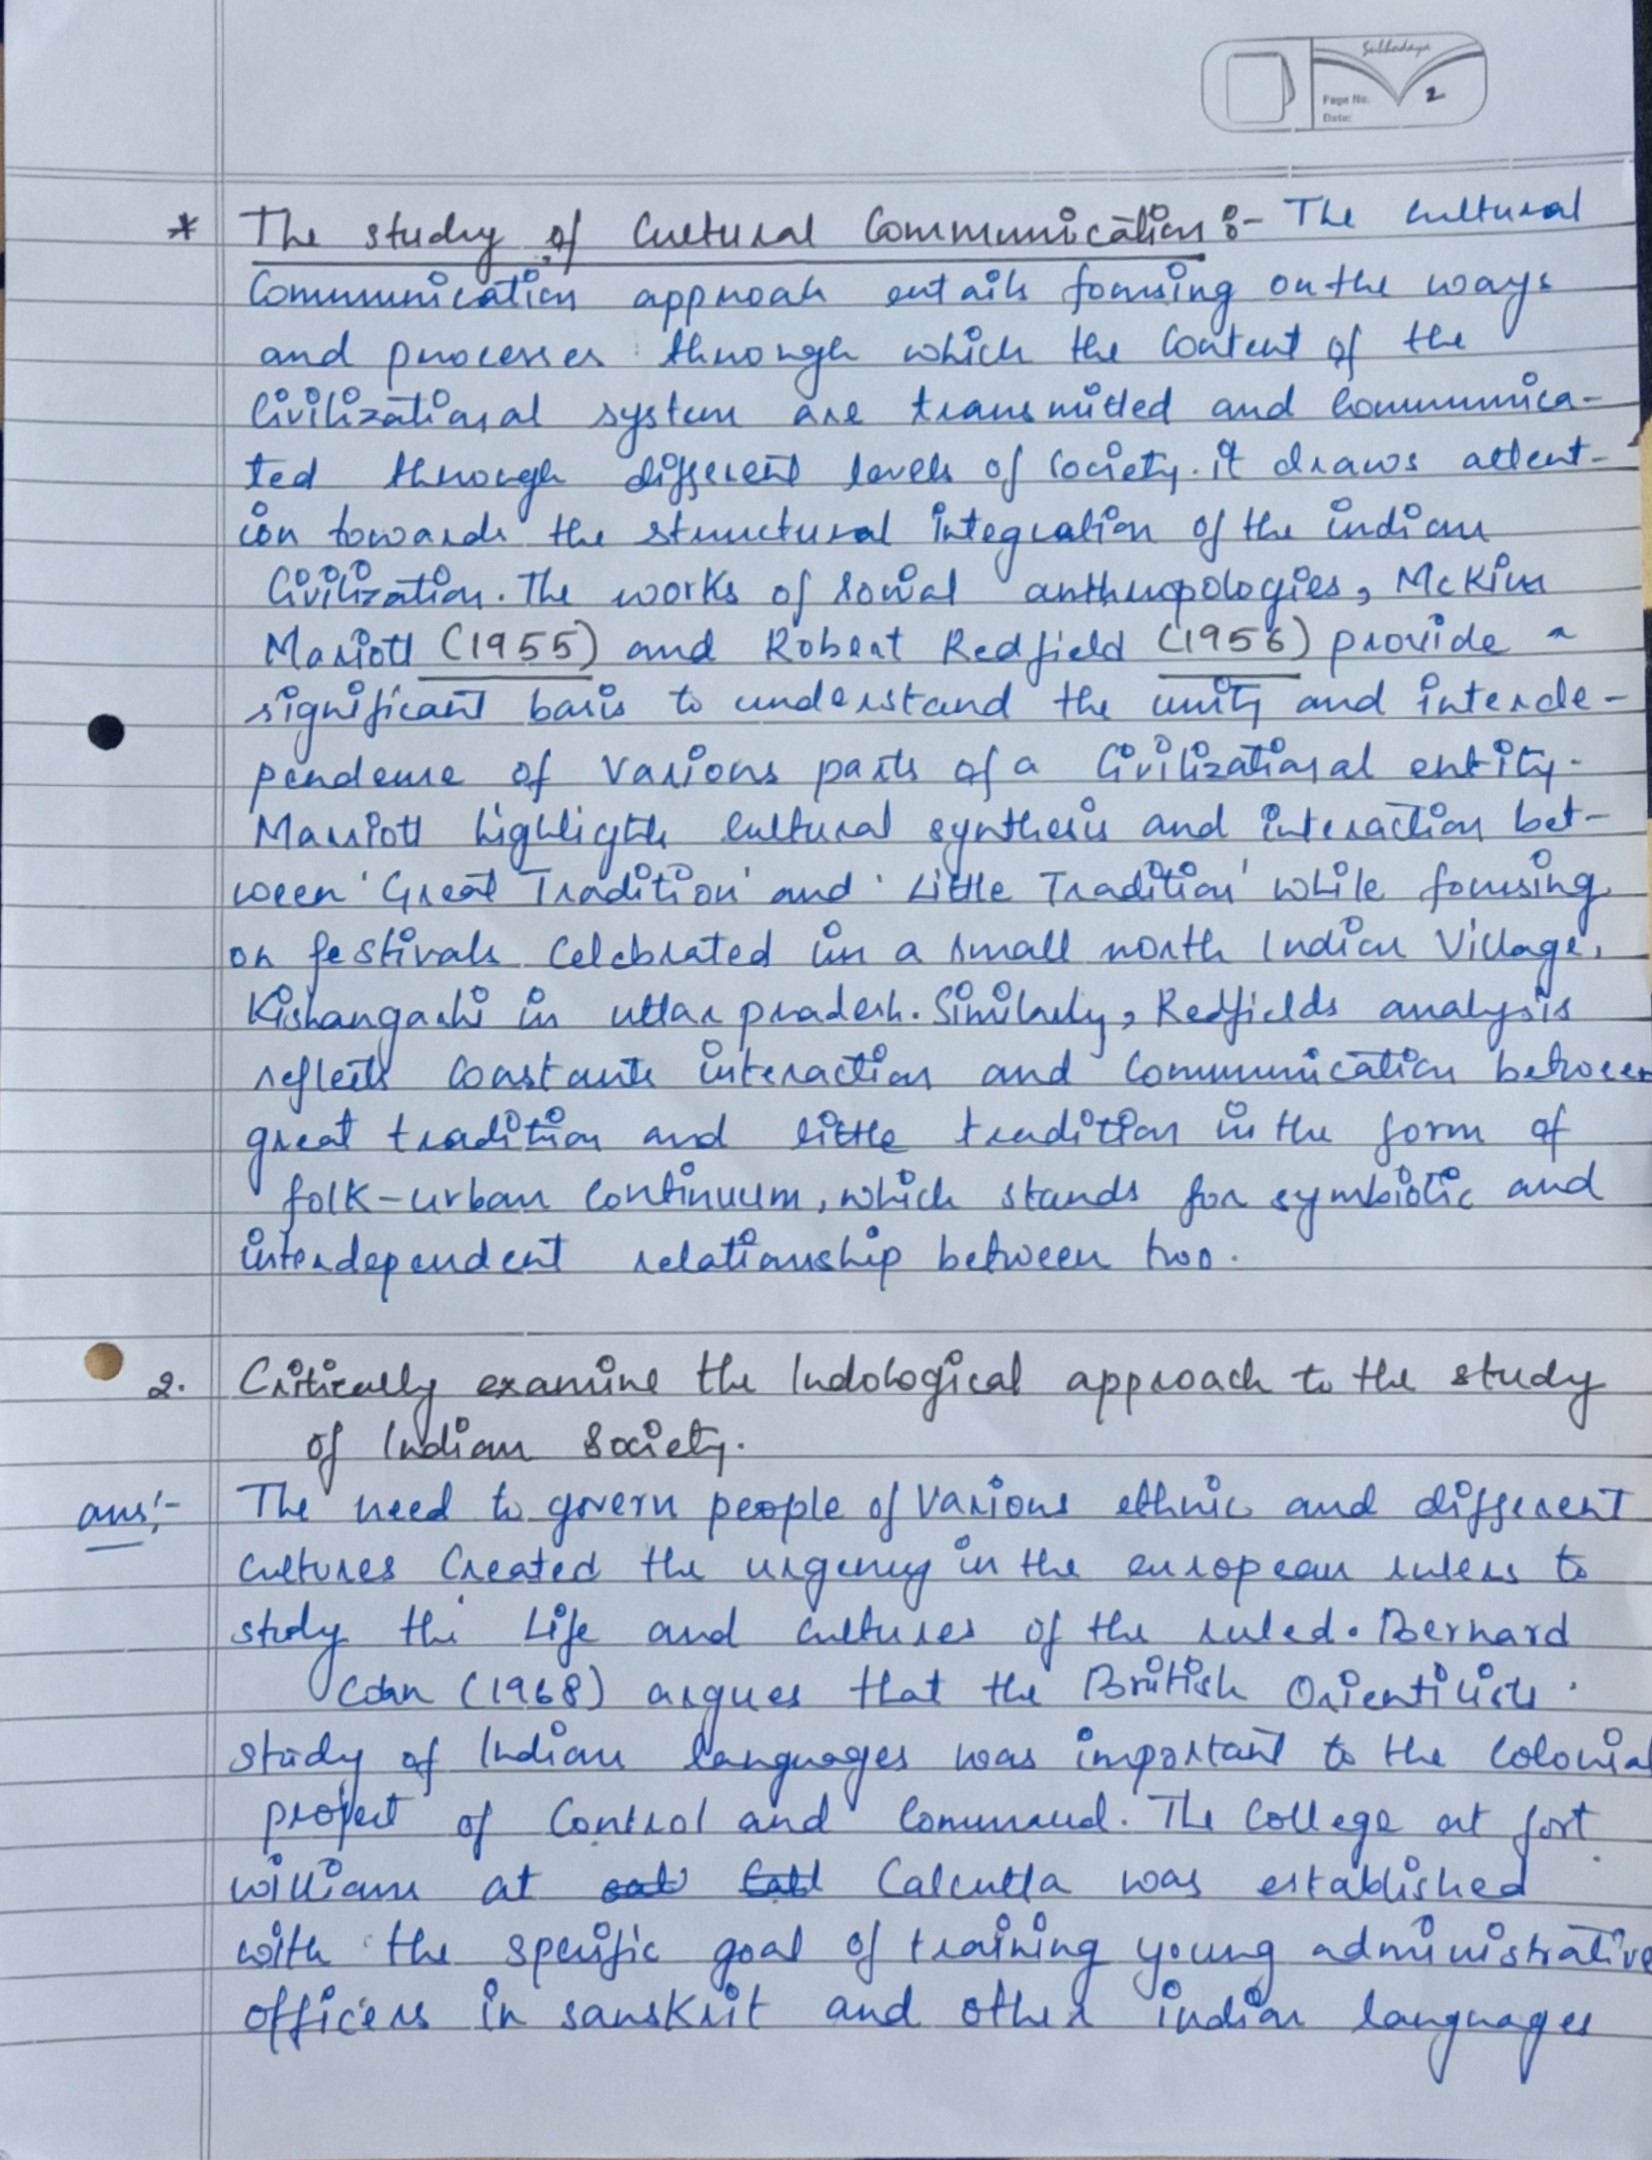 Subhodaya
Page No. 2
Date:
* The study of Cultural Communication :- The cultural
Communication approah entails focusing on the ways
and processes through which the Content of the
Civilizational system are transmitted and Communica-
ted through different levels of society. it draws attent-
ion towards the structural integration of the indian
Civilization. The works of social anthropologies, McKim
Mariott (1955) and Robert Redfield (1956) provide a
significant basis to understand the unity and interde-
pendense of Various parts of a Civilizational entity.
Marriott highlights Cultural synthesis and interaction bet-
ween 'Great Tradition' and 'Little Tradition' while focusing
on festivals Celebrated in a small north Indian Village,
Kishangarhi in uttar pradesh. Similarly, Redfields analysis
reflects Constants interaction and Communication between
great tradition and little tradition in the form of
folk-urban Continuum, which stands for symbiotic and
interdependent relationship between two.
2. Critically examine the Indological approach to the study
of Indian Society.
ans:- The need to govern people of Various ethnic and different
Cultures Created the urgency in the european rulers to
study the Life and Cultures of the ruled. Bernard
Cohn (1968) argues that the British Orientilists
study of Indian languages was important to the Colonial
project of Control and Command. The College at fort
william at Calcutta was established
with the specific goal of training young administrative
officers in sanskrit and other indian languages